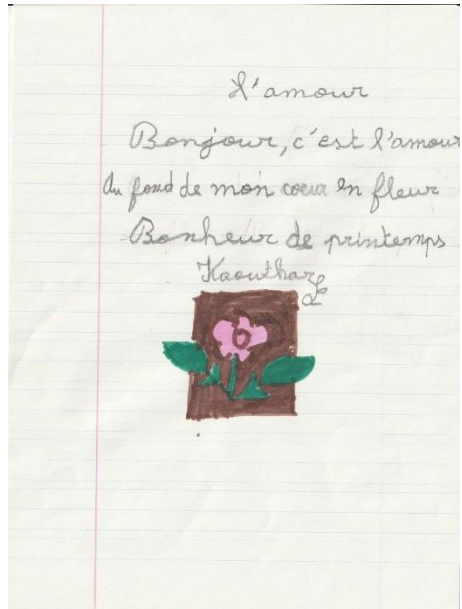 L'amour
Bonjour, c'est l'amour
Au fond de mon coeur en fleur
Bonheur de printemps
Kaouthar